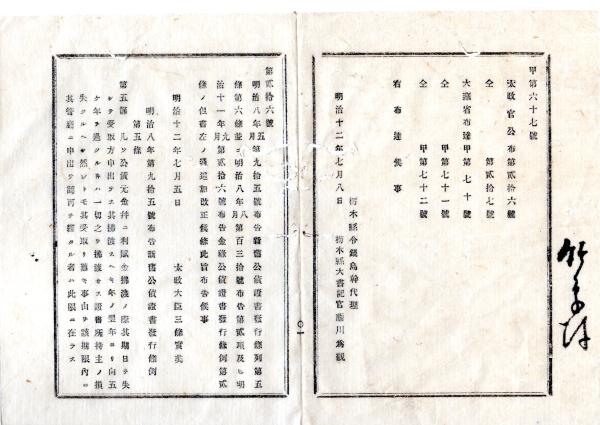 甲第六十七號
太政官公布第貳拾六號
仝 第貳拾七號
大藏省布達甲第七十號
仝 甲第七十一號
仝 甲第七十二號
右布達候事
明治十二年七月八日
栃木縣令鍋島幹代理
栃木縣大書記官藤川爲親
第貳拾六號
明治八年五月第九拾五號布告新舊公債證書發行條例第五
條第六條並ニ明治八年八月第百三十號布告第貳項及ヒ明
治十一年九月第貳拾六號布告金祿公債證書發行條例第貳
條ノ但書左ノ通追加改正候條此旨布告候事
明治十二年七月五日
太政大臣三條實美
明治八年第九拾五號布告新舊公債證書發行條例
第五條
第五項 凡ソ公債元金幷ニ利賦金拂渡ノ際其期日ヲ失
シテ受取方申出ラス其拂渡スヘキ年ノ翌年ヨリ向五
ケ年ヲ過クル片ハ一切之ヲ拂渡サス證書所持主ノ損
失タルヘシ然レトモ其受取リ難キ事由ヲ該期限內ニ
其管廳ニ申出ツ聞可ヲ經タル者ハ此限ニ在ラス